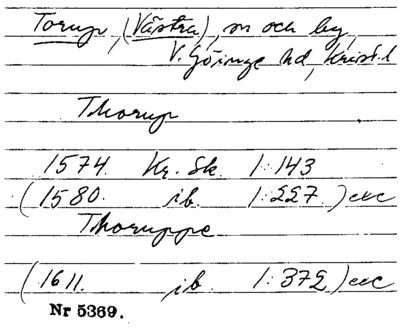 Torup, (Västra), sn och by,
V. Göinge hd, Krist. l
Thorup
1574. Kr. Sk 1:143
(1580. ib. 1:227) etc
Thoruppe
(1611. ib. 1:372) etc
Nr 5369.